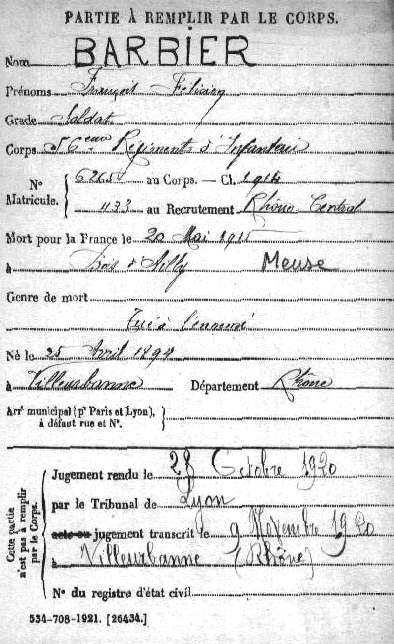 PARTIE À REMPLIR PAR LE CORPS.
Nom BARBIER
Prénoms François Félicien
Grade Soldat
Corps 56eme Régiment d'Infanterie
N° Matricule. { 6265 au Corps. — Cl. 1914
1133 au Recrutement Rhône Central
Mort pour la France le 20 Mai 1915
à Bois d'Ailly Meuse
Genre de mort
Tué à l'ennemi
Né le 25 Avril 1894
à Villeurbanne Département Rhône
Arrt municipal (pr Paris et Lyon), à défaut rue et N°. }
Cette partie n'est pas à remplir par le Corps.
Jugement rendu le 28 Octobre 1920
par le Tribunal de Lyon
acte ou jugement transcrit le 9 Novembre 1920
à Villeurbanne (Rhône)
N° du registre d'état civil
534-708-1921. [26434.]